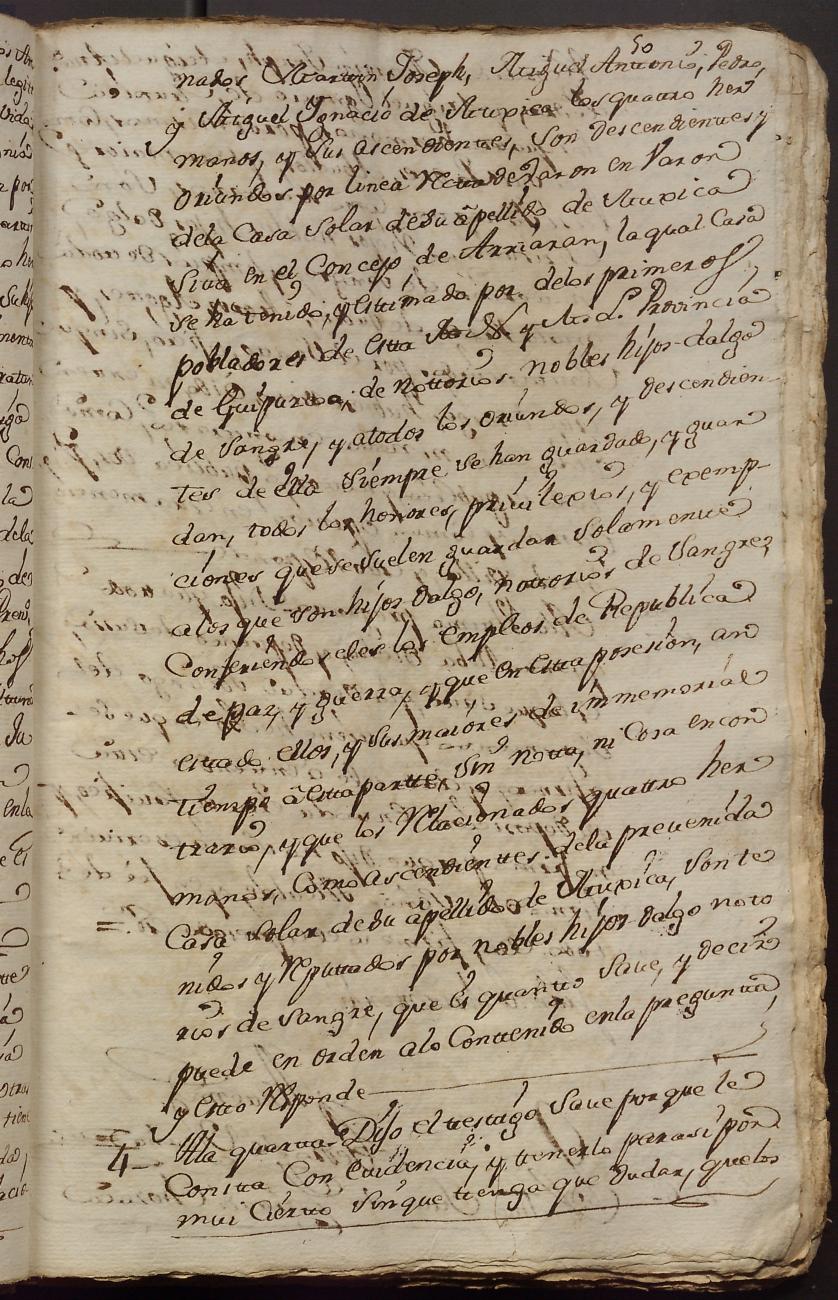 50
nados Martin Joseph, Miguel Antonio, Pedro,
y Miguel Ygnacio de Muxica los quatro her
manos, y sus ascendientes, son descendientes y
Oriundos por linea recta de Varon en Varon
dela Casa Solar de su apellido de Muxica
Sita en el Concejo de Arriaran, la qual Casa
se ha tenido, y estimado por delos primeros
pobladores de esta y Provincia
de Guipuzcoa, de nottorios nobles hijos-dalgo
de Sangre, y atodos los Oriundos, y descendien-
tes de ella Siempre se han guardado, y guar
dan, todos los honores, privilexios, y exemp-
ciones que se suelen guardar Solamente
alos que son hijos dalgo, nottorios de Sangre,
Confiriendoseles los empleos de Republica
de paz, y guerra, y que en esta posesion, an
estado ellos, y sus maiores de immemorial
tiempo â esta parte, Sin notta, ni Cosa en con
trario, y que los relacionados quattro her
manos, Como ascendientes dela prevenida
= Casa Solar de su apellido de Muxica, son te
nidos y reputtados por nobles hijos dalgo noto
rios de Sangre, que es quanto Save, y decir
puede en orden alo Contenido enla pregunta,
y esto responde
4 Ala quarta Dijo el testigo Save porque le
Consta Con evidencia, y tenerlo parasi por
mui Cierto Sinque tenga que dudar, quelos